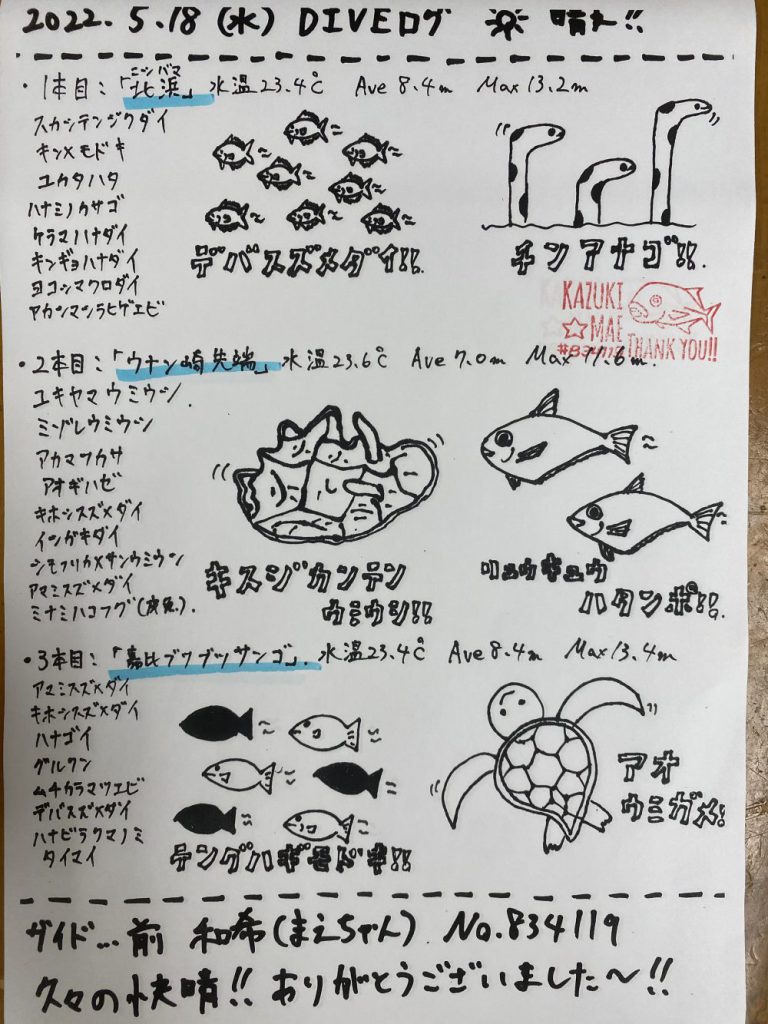 2022. 5.18 (水) DIVEログ 晴れ!!
・1本目:「北浜」 水温23.4℃ Ave 8.4m Max 13.2m
ニシバマ
スカシテンジクダイ
キンメモドキ
ユカタハタ
ハナミノカサゴ
ケラマハナダイ
キンギョハナダイ
ヨコシマクロダイ
アカシマシラヒゲエビ
デバスズメダイ!!
チンアナゴ!!
KAZUKI
MAE
#834119
THANK YOU!!
・2本目:「ウナン崎先端」 水温23.6℃ Ave 7.0m Max 11.6m
ユキヤマウミウシ
ミゾレウミウシ
アカマツカサ
アオギハゼ
キホシスズメダイ
イシガキダイ
シモフリカメサンウミウシ
アマミスズメダイ
ミナミハコフグ(成魚)
キスジカンテン
ウミウシ!!
リュウキュウ
ハタンポ!!
・3本目:「嘉比ブツブツサンゴ」 水温23.4℃ Ave 8.4m Max 13.4m
アマミスズメダイ
キホシスズメダイ
ハナゴイ
グルクン
ムチカラマツエビ
デバスズメダイ
ハナビラクマノミ
タイマイ
テングハギモドキ!!
アオ
ウミガメ!
ガイド... 前 和希(まえちゃん) No.834119
久々の快晴!! ありがとうございました〜!!